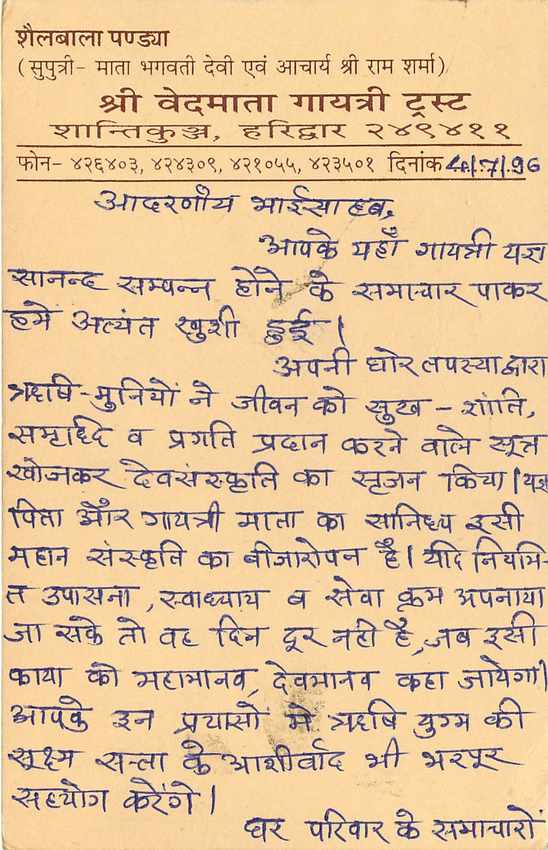 शैलबाला पण्ड्या
(सुपुत्री- माता भगवती देवी एवं आचार्य श्री राम शर्मा)
श्री वेदमाता गायत्री ट्रस्ट
शान्तिकुञ्ज, हरिद्वार २४९४११
फोन- ४२६४०३, ४२४३०९, ४२१०५५, ४२३५०१ दिनांक 4/.7/.96
आदरणीय भाईसाहब,
आपके यहाँ गायत्री यज्ञ
सानन्द सम्पन्न होने के समाचार पाकर
हमें अत्यंत खुशी हुई।
अपनी घोर तपस्या द्वारा
ऋषि-मुनियों ने जीवन को सुख - शांति,
समृद्धि व प्रगति प्रदान करने वाले सूत्र
खोजकर देवसंस्कृति का सृजन किया। यज्ञ
पिता और गायत्री माता का सानिध्य इसी
महान संस्कृति का बीजारोपन है। यदि नियमि-
त उपासना, स्वाध्याय व सेवा क्रम अपनाया
जा सके तो वह दिन दूर नही है, जब इसी
काया को महामानव, देवमानव कहा जायेगा।
आपके इन प्रयासों में ऋषि युग्म की
सूक्ष्म सत्ता के आशीर्वाद भी भरपूर
सहयोग करेंगे।
घर परिवार के समाचारों